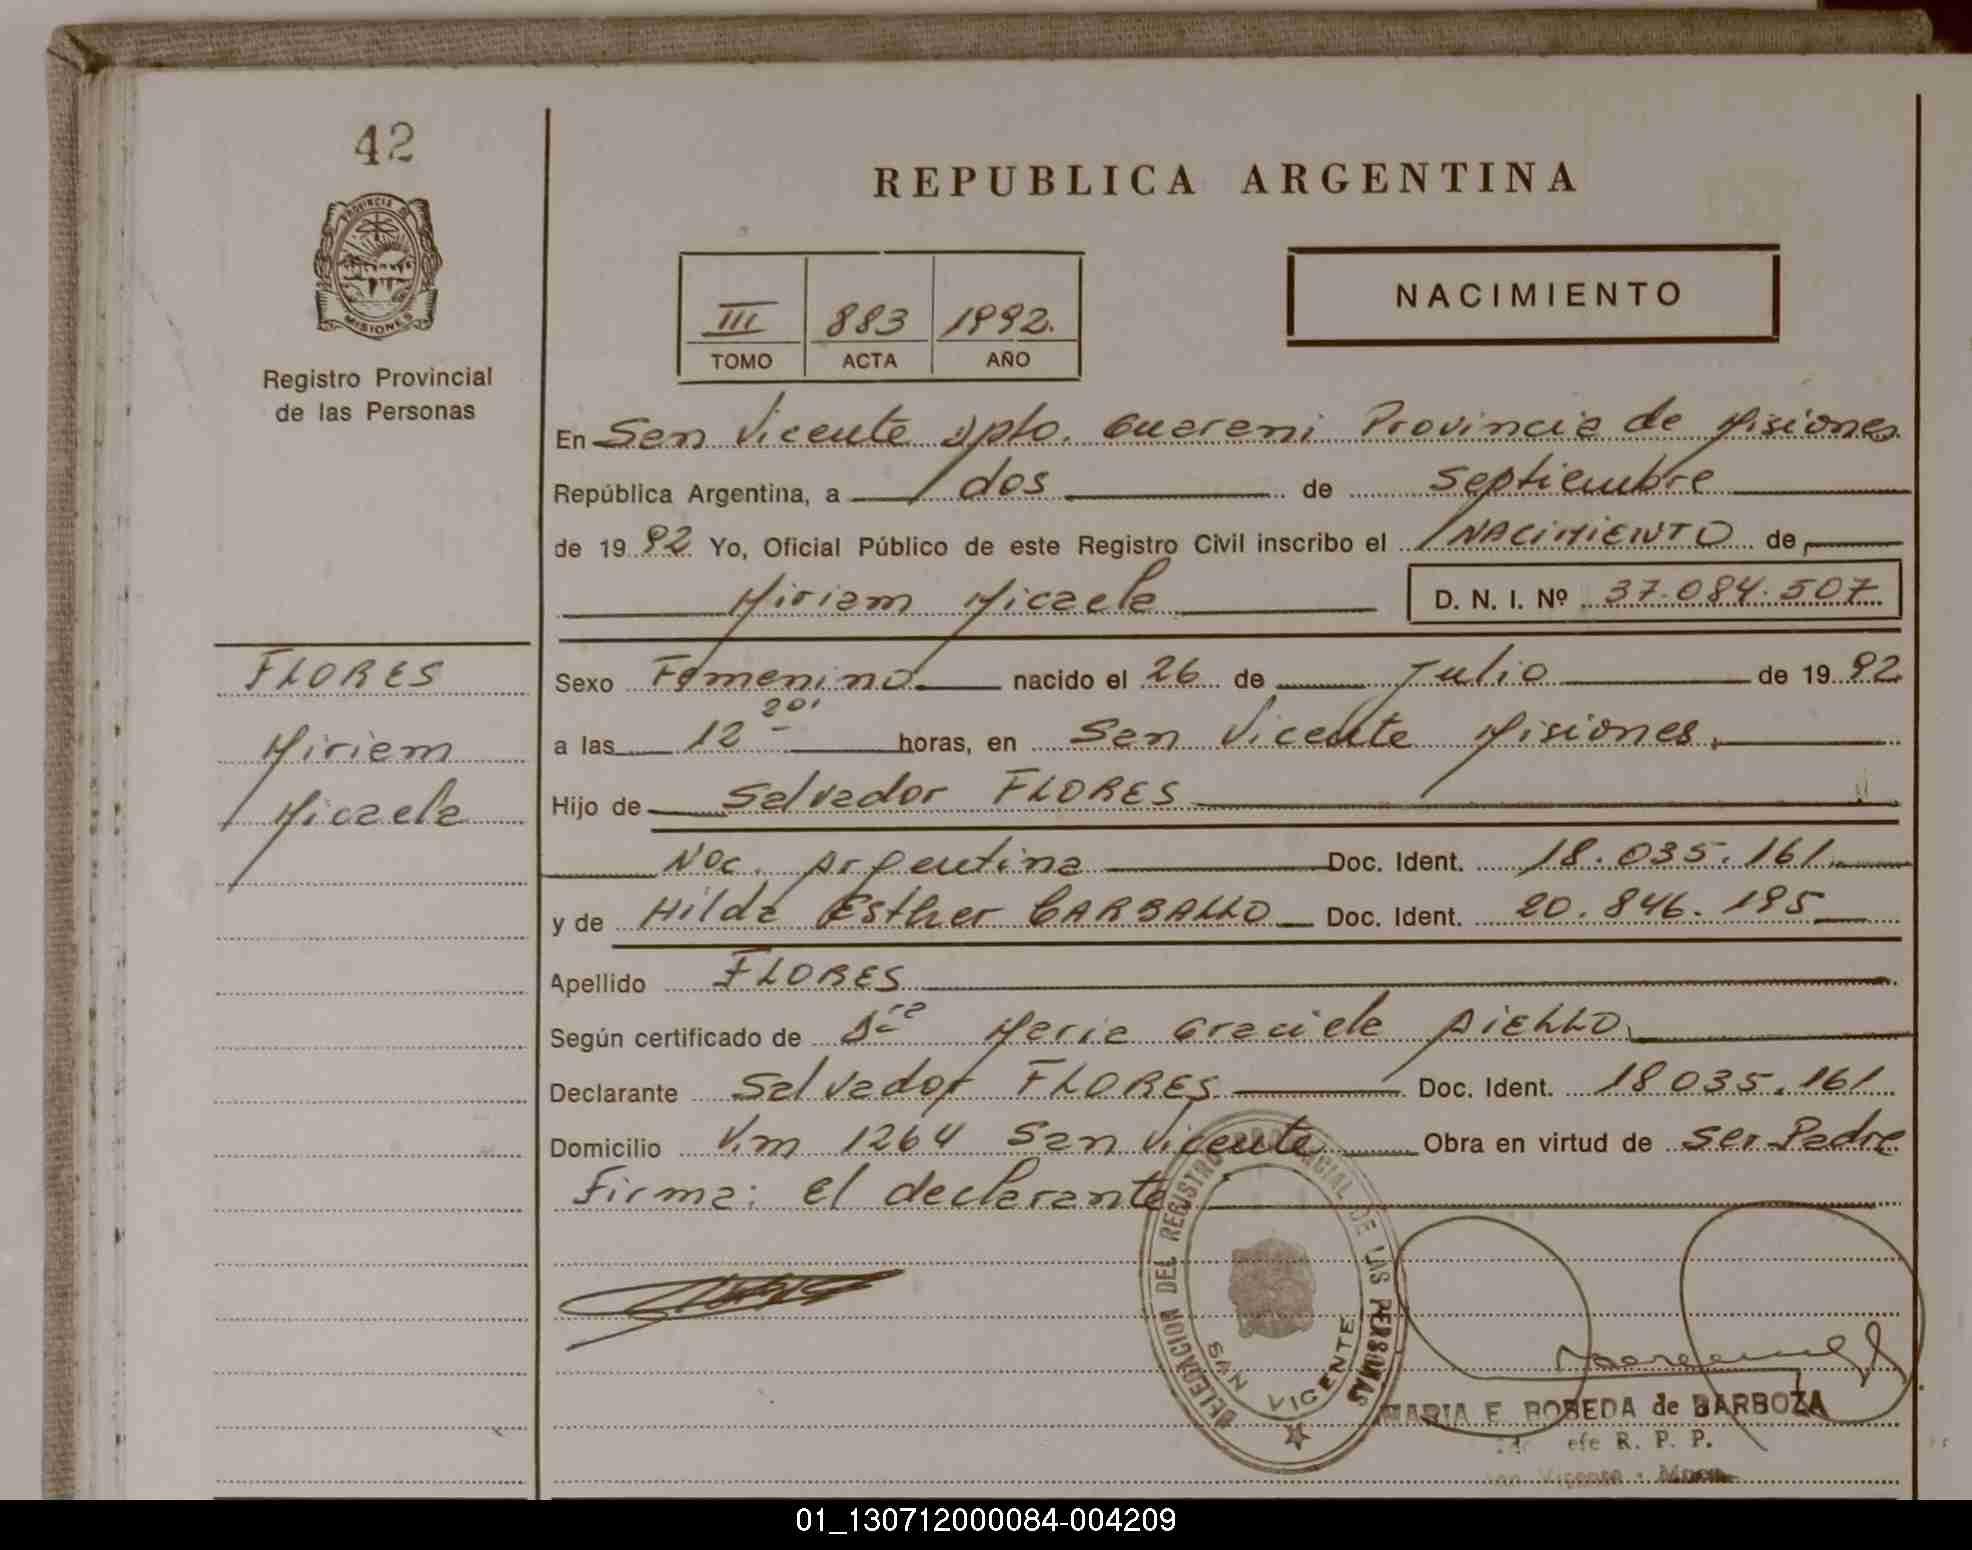 42
PROVINCIA DE
MISIONES
Registro Provincial
de las Personas
REPUBLICA ARGENTINA
III 883 1992.
TOMO ACTA AÑO
NACIMIENTO
En San Vicente Dpto. Guarani Provincia de Misiones
República Argentina, a dos de Septiembre
de 19 92 Yo, Oficial Público de este Registro Civil inscribo el NACIMIENTO de
Miriam Micaela D. N. I. Nº 37.084.507
FLORES
Miriam
Micaela
Sexo Femenino nacido el 26 de Julio de 19 92
a las 12 20' horas, en San Vicente Misiones.
Hijo de Salvador FLORES
Nac. Argentina Doc. Ident. 18.035.161
y de Hilda Esther CARBALLO Doc. Ident. 20.846.195
Apellido FLORES
Según certificado de Dra Maria Graciela AIELLO
Declarante Salvador FLORES Doc. Ident. 18.035.161
Domicilio Km 1264 San Vicente Obra en virtud de ser Padre
Firma: el declarante
DELEGACION DEL REGISTRO PROVINCIAL DE LAS PERSONAS
SAN VICENTE
MARIA E. BOBEDA de BARBOZA
Jefe R. P. P.
San Vicente - Mnes.
01_130712000084-004209